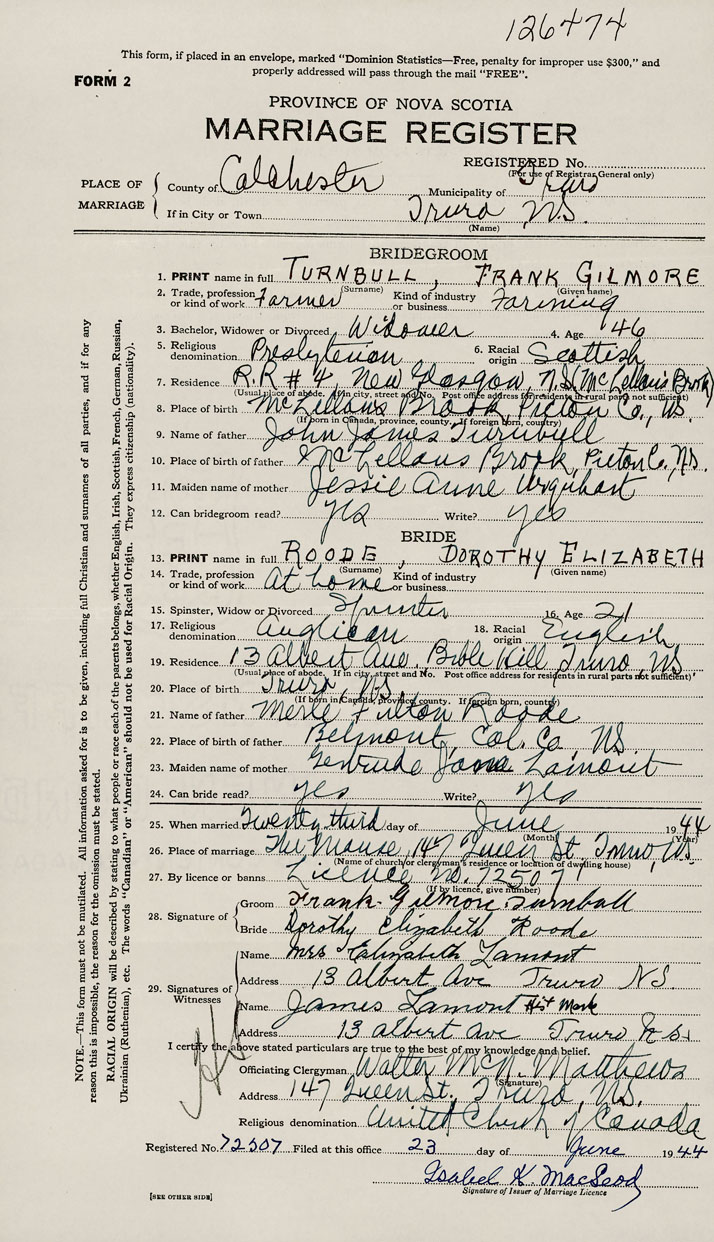 126474
This form, if placed in an envelope, marked "Dominion Statistics—Free, penalty for improper use $300," and
properly addressed will pass through the mail "FREE".
FORM 2
PROVINCE OF NOVA SCOTIA
MARRIAGE REGISTER
REGISTERED No.
(For use of Registrar General only)
PLACE OF MARRIAGE
County of Colchester Municipality of Truro
If in City or Town Truro N.S.
(Name)
BRIDEGROOM
1. PRINT name in full TURNBULL, FRANK GILMORE
(Surname) (Given name)
2. Trade, profession or kind of work Farmer Kind of industry or business Farming
3. Bachelor, Widower or Divorced Widower 4. Age 46
5. Religious denomination Presbyterian 6. Racial origin Scottish
7. Residence R.R # 4, New Glasgow, N.S. (McLellans Brook)
(Usual place of abode. If in city, street and No. Post office address for residents in rural parts not sufficient)
8. Place of birth McLellans Brook, Pictou Co., NS.
(If born in Canada, province, county. If foreign born, country)
9. Name of father John James Turnbull
10. Place of birth of father McLellans Brook, Pictou Co. NS.
11. Maiden name of mother Jessie Anne Urquhart
12. Can bridegroom read? yes Write? yes
BRIDE
13. PRINT name in full ROODE, DOROTHY ELIZABETH
(Surname) (Given name)
14. Trade, profession or kind of work At home Kind of industry or business
15. Spinster, Widow or Divorced Spinster 16. Age 21
17. Religious denomination Anglican 18. Racial origin English
19. Residence 13 Albert Ave. Bible Hill, Truro, NS
(Usual place of abode. If in city, street and No. Post office address for residents in rural parts not sufficient)
20. Place of birth Truro, NS
(If born in Canada, province, county. If foreign born, country)
21. Name of father Merle Fulton Roode
22. Place of birth of father Belmont, Col. Co. NS
23. Maiden name of mother Gertrude Lamont
24. Can bride read? yes Write? yes
25. When married Twenty third day of June 1944
(Month) (Year)
26. Place of marriage The Manse, 147 Queen St, Truro, NS.
(Name of church or clergyman's residence or location of dwelling house)
27. By licence or banns Licence No. 72507
(If by licence, give number)
28. Signature of
Groom Frank Gilmore Turnbull
Bride Dorothy Elizabeth Roode
29. Signatures of Witnesses
Name Mrs Elizabeth Lamont
Address 13 Albert Ave Truro N.S.
Name James Lamont His Mark
Address 13 albert ave Truro N.S.
I certify the above stated particulars are true to the best of my knowledge and belief.
Officiating Clergyman Walter McN. Matthews
(Signature)
Address 147 Queen St. Truro, NS.
Religious denomination United Church of Canada
Registered No. 72507 Filed at this office 23 day of June 1944
Isabel K. MacLeod
Signature of Issuer of Marriage Licence
[SEE OTHER SIDE]
NOTE.—This form must not be mutilated. All information asked for is to be given, including full Christian and surnames of all parties, and if for any
reason this is impossible, the reason for the omission must be stated.
RACIAL ORIGIN will be described by stating to what people or race each of the parents belongs, whether English, Irish, Scottish, French, German, Russian,
Ukrainian (Ruthenian), etc. The words "Canadian" or "American" should not be used for Racial Origin. They express citizenship (nationality).